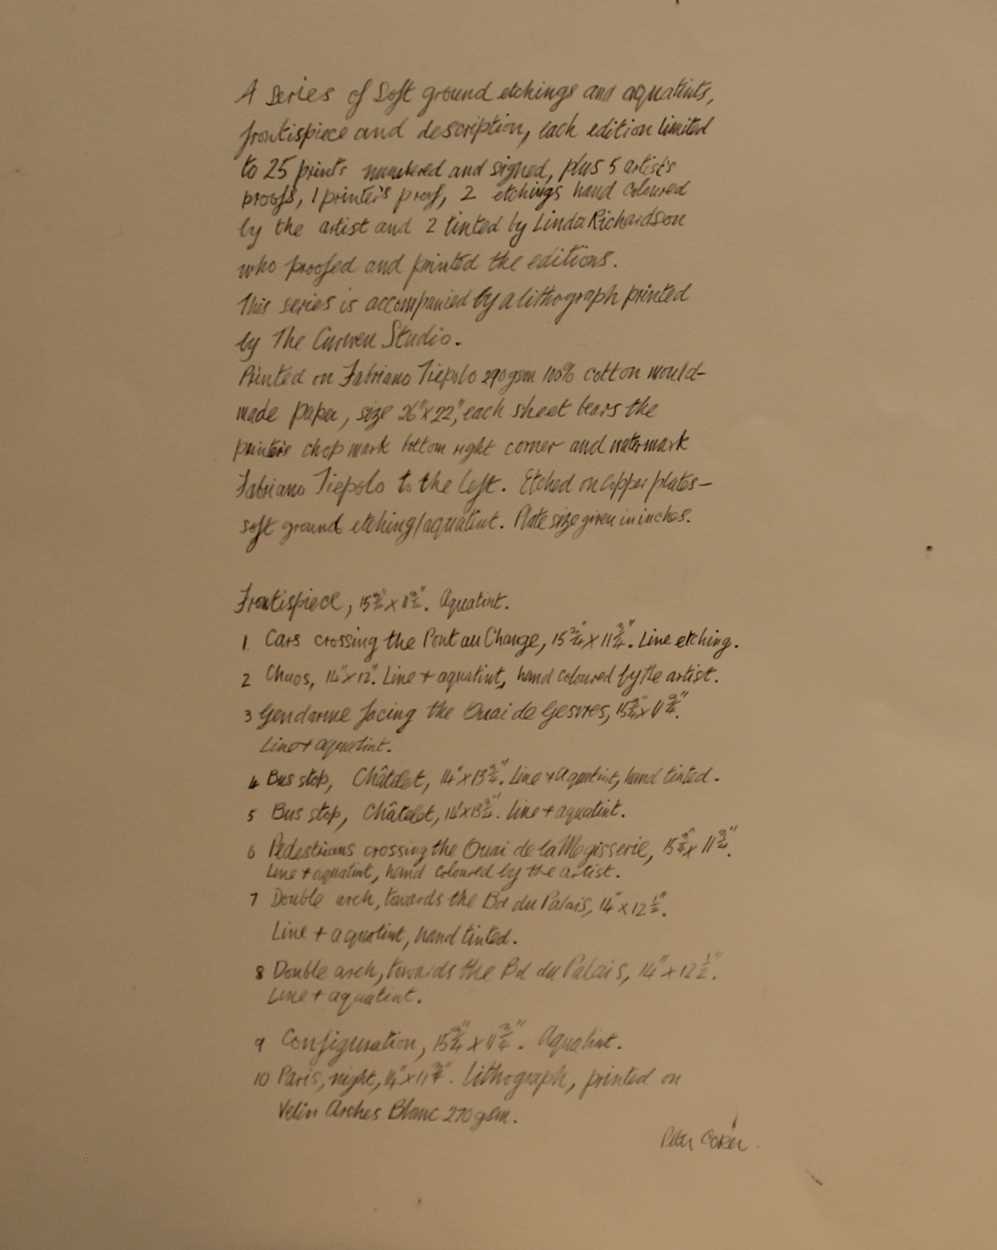 A series of soft ground etchings and aquatints,
frontispiece and description, each edition limited
to 25 prints numbered and signed, plus 5 artist's
proofs, 1 printer's proof, 2 etchings hand coloured
by the artist and 2 tinted by Linda Richardson
who proofed and printed the editions.
This series is accompanied by a lithograph printed
by The Curwen Studio.
Printed on Fabriano Tiepolo 290gsm 100% cotton mould-
made paper, size 26"x22", each sheet bears the
printer's chop mark bottom right corner and watermark
Fabriano Tiepolo to the left. Etched on copper plates—
soft ground etching/aquatint. Plate size given in inches.
Frontispiece, Aquatint.
1 Cars crossing the Pont au Change, 15¾" x 11¾". Line etching.
2 Chaos, 14"x12". Line + aquatint, hand coloured by the artist.
3 Gendarme facing the Quai de Gesvres, 15¾"x11¾".
Line + aquatint.
4 Bus stop, Châtelet, 14"x13¾". Line + aquatint, hand tinted.
5 Bus stop, Châtelet, 14"x13¾". Line + aquatint.
6 Pedestrians crossing the Quai de la Megisserie, 15¾"x 11¾".
Line + aquatint, hand coloured by the artist.
7 Double arch, towards the Bd du Palais, 14" x 12½".
Line + aquatint, hand tinted.
8 Double arch, towards the Bd du Palais, 14" x 12½".
Line + aquatint.
9 Configuration, 15¾" x 11¾". Aquatint.
10 Paris, night, 14"x11¾". Lithograph, printed on
Velin Arches Blanc 270gsm.
Peter Coker.